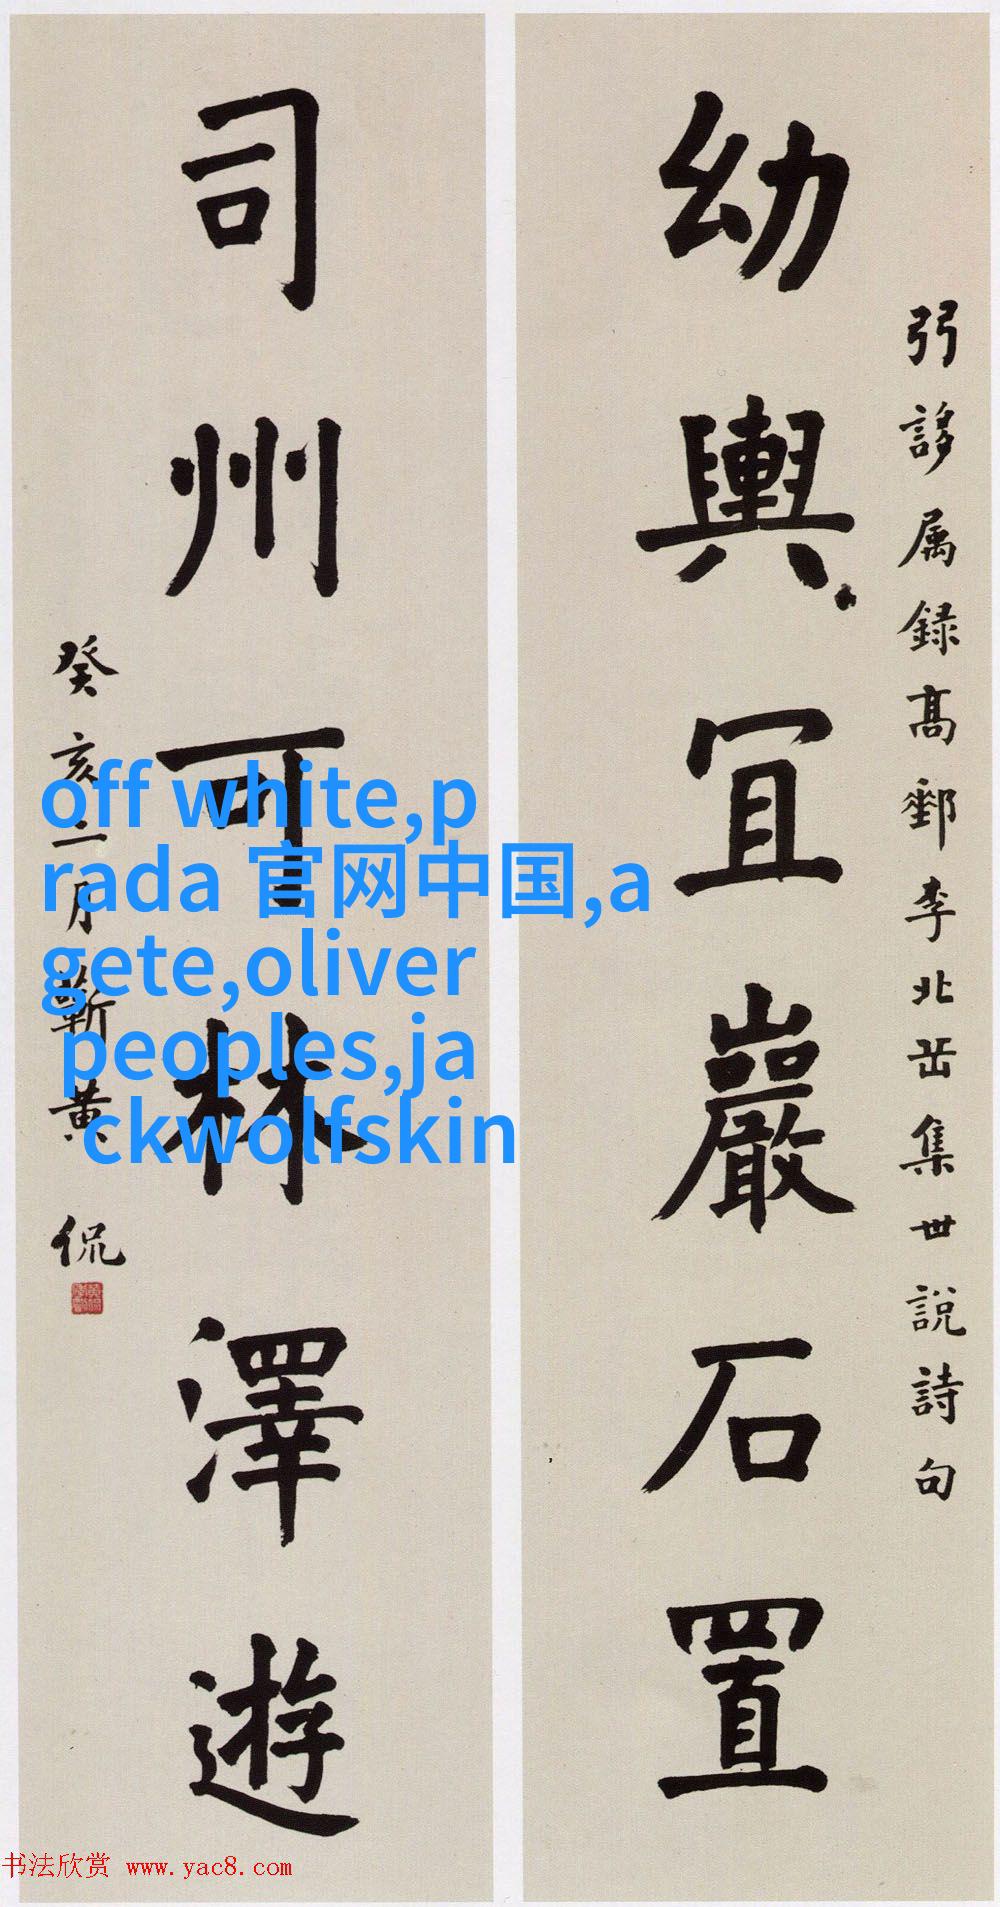 幼輿宜巖石置
弜誃属録髙郵李北苖集世説詩句
司州可林澤遊
癸亥二月蘄黄侃
off white,p
rada 官网中国,a
gete,oliver
peoples,ja
ckwolfskin
书法欣赏 www.yac8.com